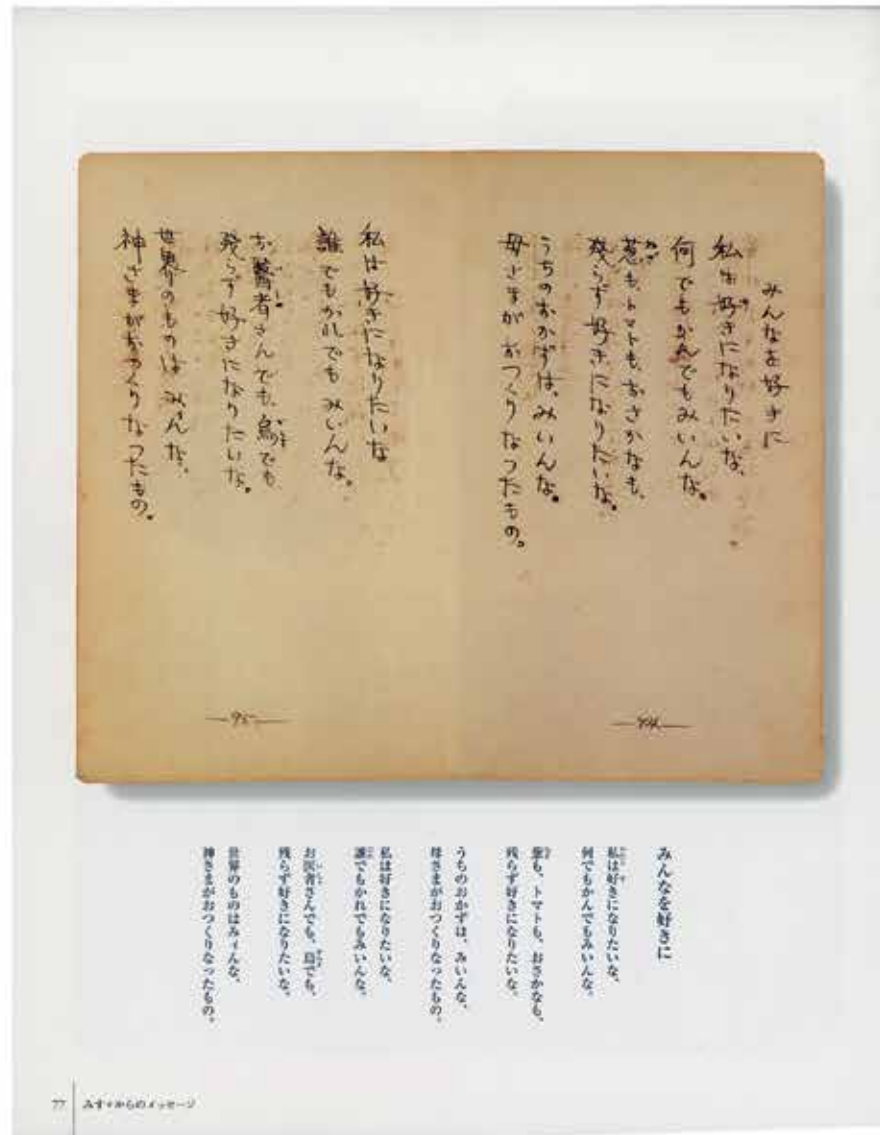 みんなを好きに
私は好きになりたいな、
何でもかんでもみいんな。
葱も、トマトも、おさかなも、
残らず好きになりたいな。
うちのおかずは、みいんな、
母さまがおつくりなつたもの。
私は好きになりたいな
誰でもかれでもみいんな。
お醫者さんでも、烏でも、
残らず好きになりたいな。
世界のものはみィんな、
神さまがおつくりなつたもの。
—94—
—95—
みんなを好きに
私は好きになりたいな、
何でもかんでもみいんな。
葱も、トマトも、おさかなも、
残らず好きになりたいな。
うちのおかずは、みいんな、
母さまがおつくりなったもの。
私は好きになりたいな、
誰でもかれでもみいんな。
お医者さんでも、烏でも、
残らず好きになりたいな。
世界のものはみィんな、
神さまがおつくりなったもの。
77 みすゞからのメッセージ